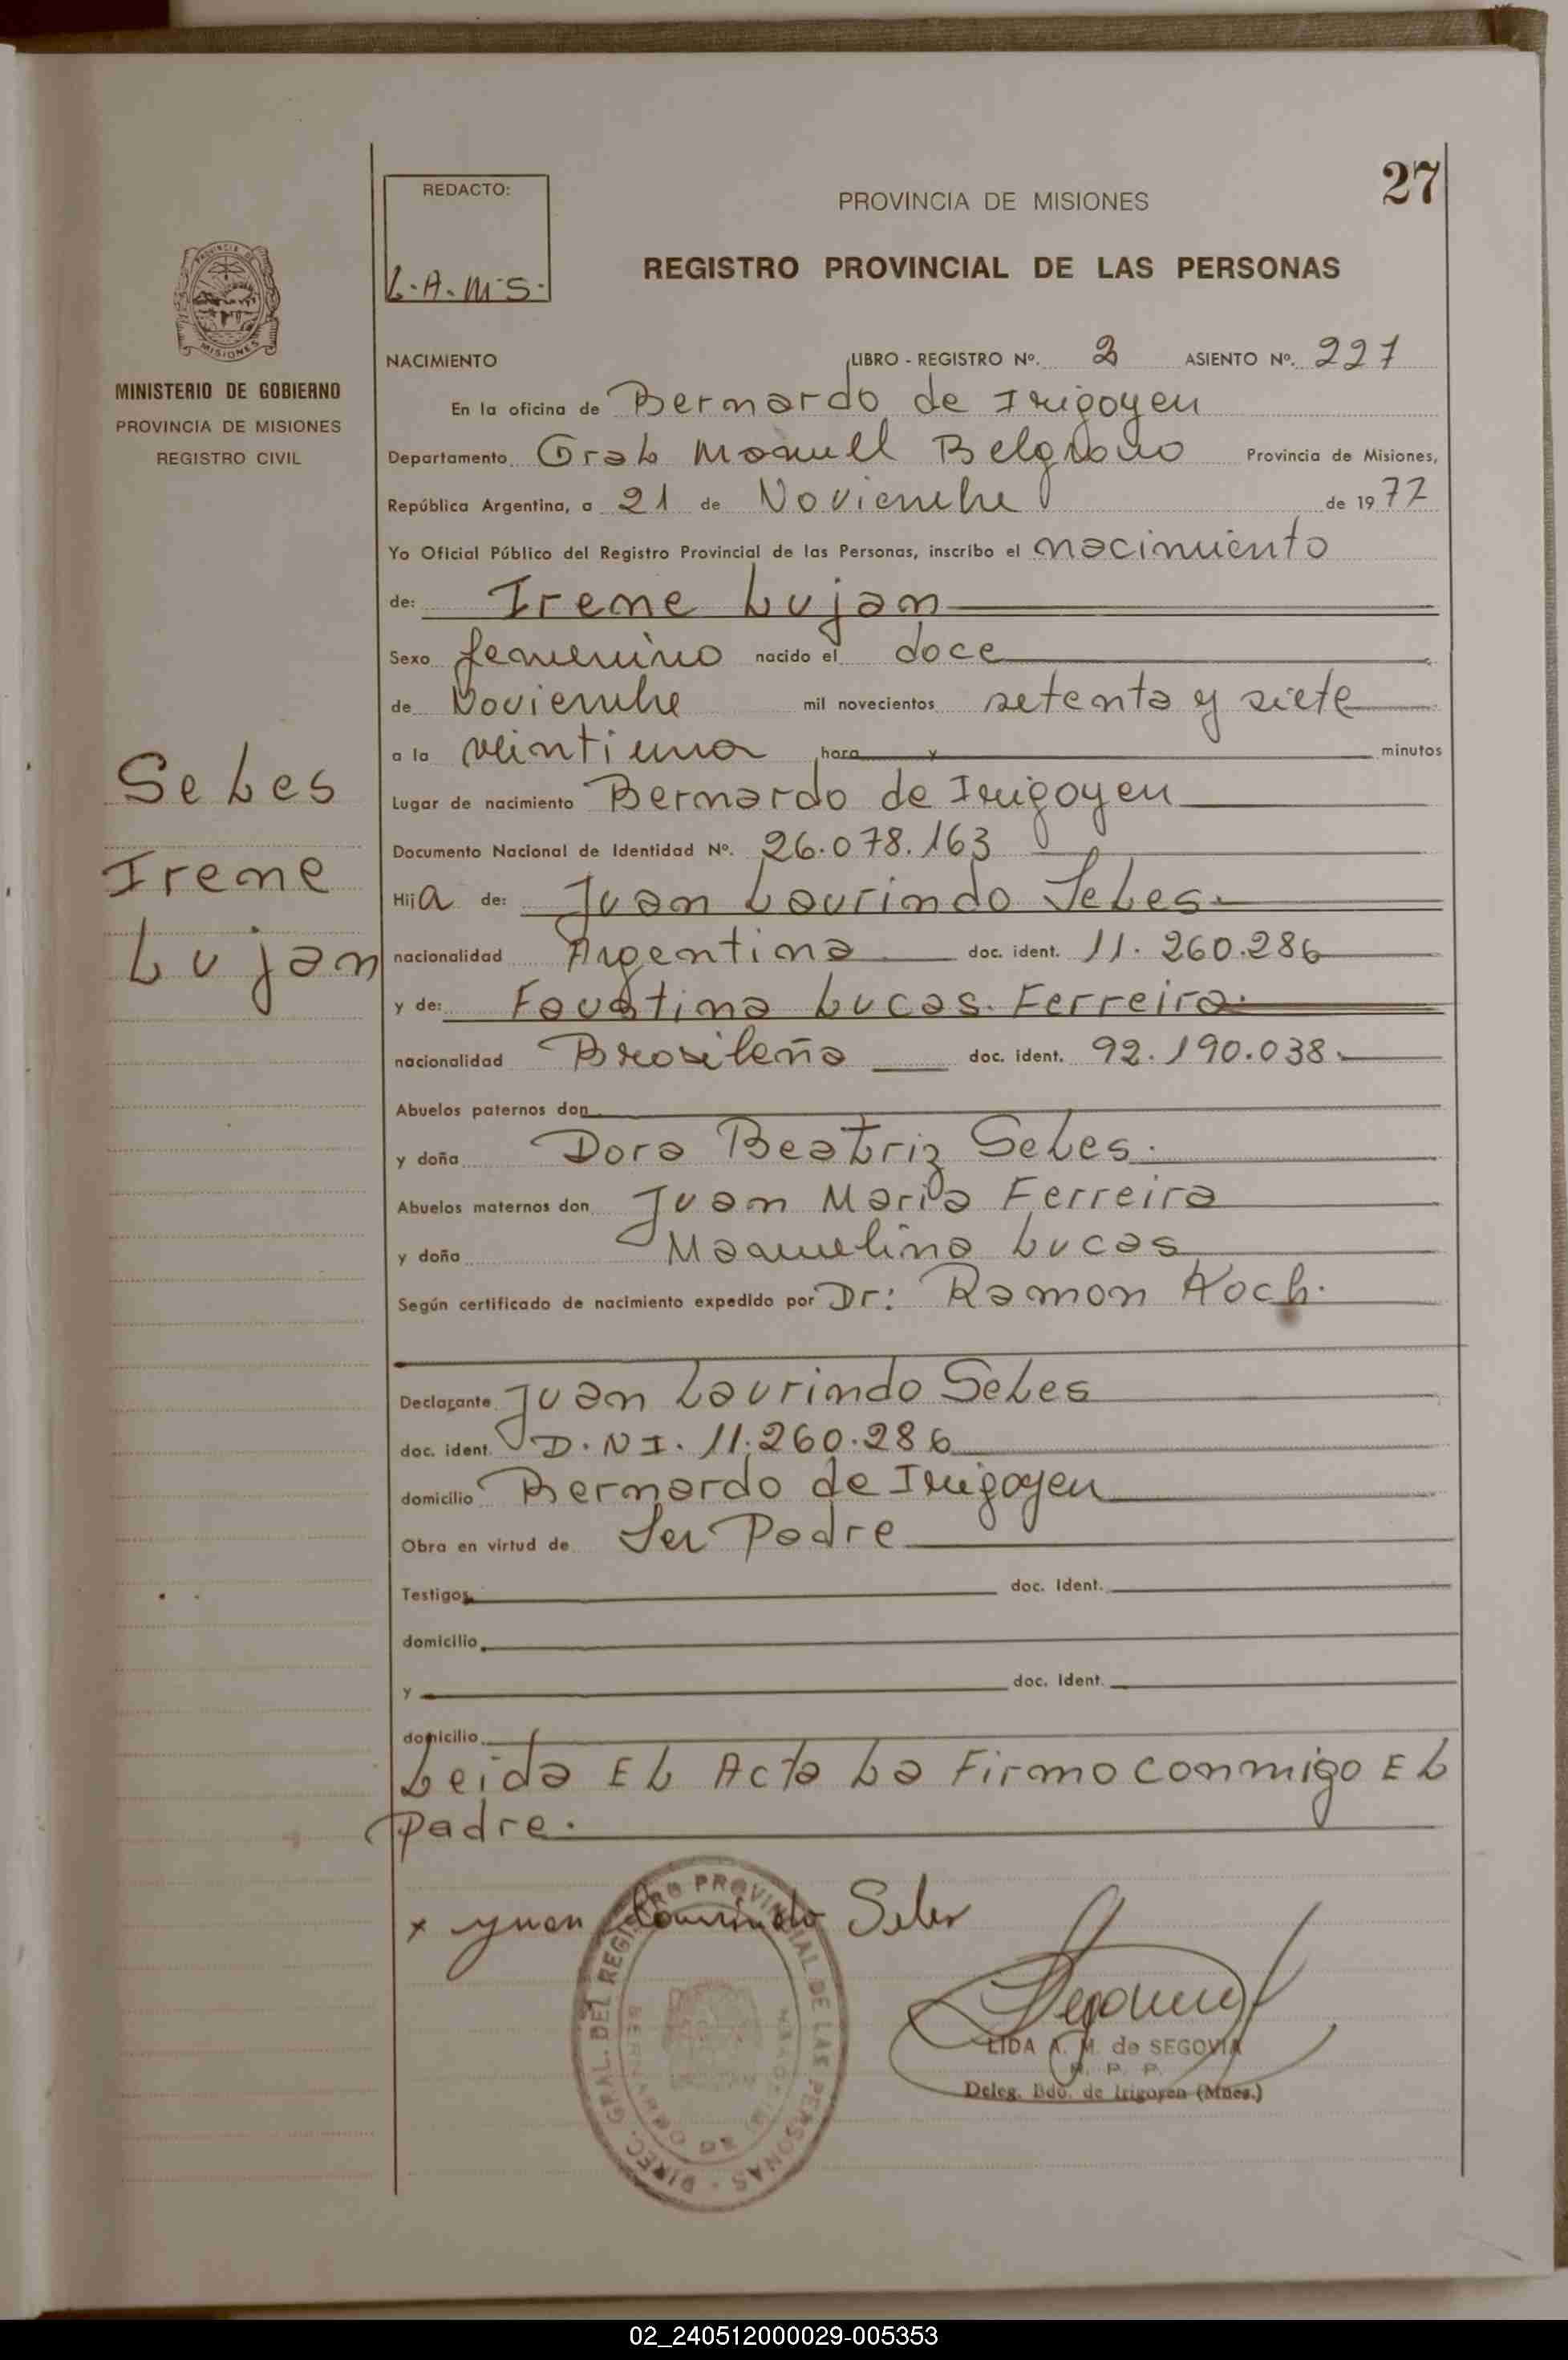 27
REDACTO:
L.A.M.S.
PROVINCIA DE MISIONES
REGISTRO PROVINCIAL DE LAS PERSONAS
PROVINCIA DE
MISIONES
MINISTERIO DE GOBIERNO
PROVINCIA DE MISIONES
REGISTRO CIVIL
Seles
Irene
Lujan
NACIMIENTO LIBRO - REGISTRO Nº. 2 ASIENTO Nº. 227
En la oficina de Bernardo de Irigoyen
Departamento Gral Manuel Belgrano Provincia de Misiones,
República Argentina, a 21 de Noviembre de 1977
Yo Oficial Público del Registro Provincial de las Personas, inscribo el nacimiento
de: Irene Lujan
Sexo femenino nacido el doce
de Noviembre mil novecientos setenta y siete
a la veintiuna hora y minutos
Lugar de nacimiento Bernardo de Irigoyen
Documento Nacional de Identidad Nº. 26.078.163
Hija de: Juan Laurindo Seles.
nacionalidad Argentina doc. ident. 11.260.286
y de: Faustina Lucas Ferreira.
nacionalidad Brasileña doc. ident. 92.190.038.
Abuelos paternos don
y doña Dora Beatriz Seles.
Abuelos maternos don Juan Maria Ferreira
y doña Manuelina Lucas
Según certificado de nacimiento expedido por Dr: Ramon Koch.
Declarante Juan Laurindo Seles
doc. ident. D.N.I. 11.260.286
domicilio Bernardo de Irigoyen
Obra en virtud de Ser Padre
Testigos doc. Ident.
domicilio
y doc. Ident.
domicilio
Leida El Acta La Firmo conmigo El
padre.
x Juan Laurindo Seles
DIREC. GRAL. DEL REGISTRO PROVINCIAL DE LAS PERSONAS
LIDA A. M. de SEGOVIA
R. P. P.
Deleg. Bdo. de Irigoyen (Mnes.)
02_240512000029-005353